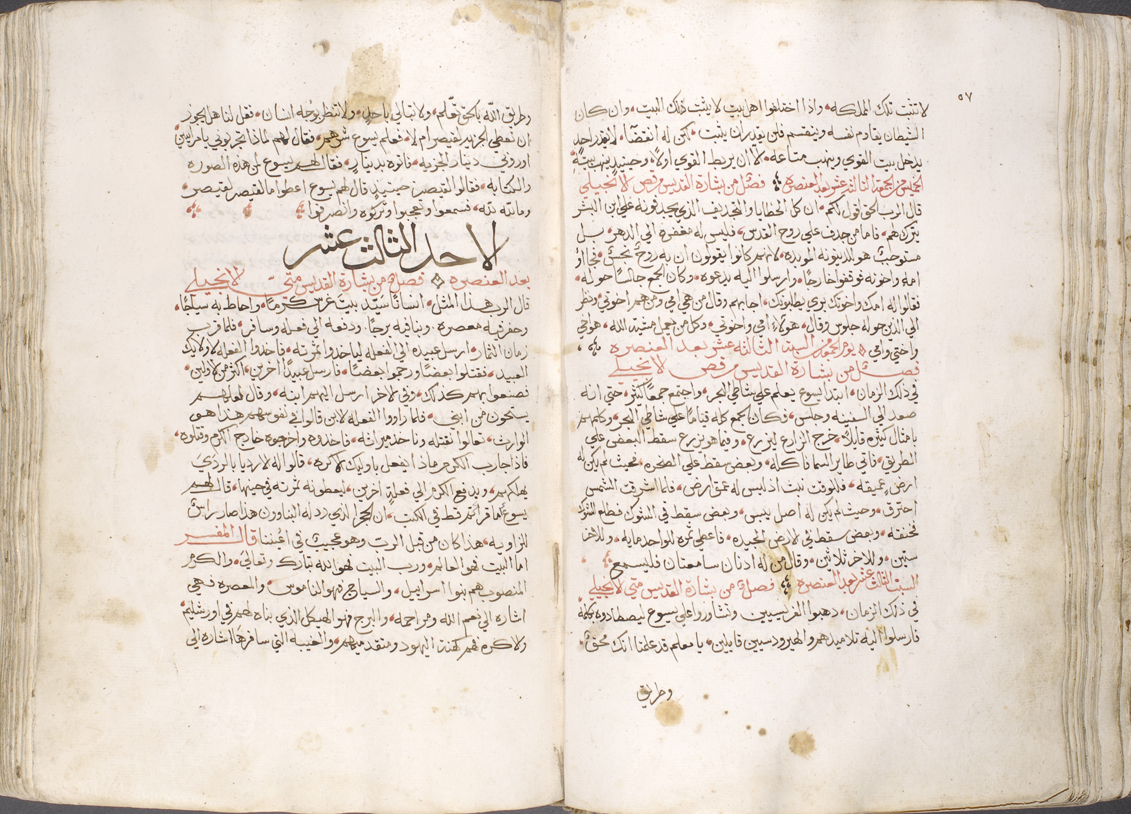 ٥٧
لا تثبت تلك المملكه وإذا اختلفوا اهل بيت لا يثبت ذلك البيت وان كان
الشيطان يقاوم نفسه وينقسم فلن يقدر ان يثبت لكن له انقضاء لا يقدر احد
يدخل بيت القوي وينهب متاعه الا ان يربط القوي اولا وحينيذٍ ينهب بيته
فصل من بشارة القديس مرقص الانجيلي
قال الرب الحق اقول لكم ان كل الخطايا والتجاديف الذي يجدفونه على ابن البشر
يترك لهم فاما من جدف على روح القدس فليس له مغفره الى الدهر بل
مستوجب هو للدينونه الموبده لانهم كانوا يقولون ان به روح نجس فجاءوا
امه واخوته فوقفوا خارجًا وارسلوا اليه يدعوه وكان الجمع جالسًا حوله
فقالوا له امك واخوتك برى يطلبونك اجابهم وقال من هي امي ومن هم اخوتي ونظر
الى الذين حوله جلوس وقال هولاء امي واخوتي وكل من يعمل مشية الله هو اخي
واختي وامي يوم السبت الثالثه عشر بعد العنصره
فصل من بشارة القديس مرقص الانجيلي
في ذلك الزمان ابتدا يسوع يعلم على شاطي البحر واجتمع جمعًا كثير حتى انه
صعد الى السفينه وجلس فكان الجمع كله قيامًا على شاطي البحر وكلمهم
بامثال كثيره قايلا خرج الزارع ليزرع وفيما هو يزرع سقط البعض على
الطريق فاتى طاير السما فاكله وبعض سقط على الصخره بحيث لم يكن له
ارض عميقه فللوقت نبت اذ ليس له عمق ارض فلما اشرقت الشمس
احترق وحيث لم يكن له اصل يبس وبعض سقط في الشوك فطلع الشوك
فخنقه وبعض سقط في الارض الجيده فاعطى ثمره للواحد مايه وللاخر
ستين وللاخر ثلاثين وقال من له اذنان سامعتان فليسمع
السبت الثالث عشر بعد العنصره فصل من بشارة القديس متى الانجيلي
في ذلك الزمان ذهبوا الفريسيين وتشاوروا على يسوع ليصطادوه بكلمة
فارسلوا اليه تلاميذهم والهيرودسيين قايلين يا معلم قد علمنا انك محق
وطريق
وطريق الله بالحق تعلم ولا تبالي باحد ولا تنظر بوجه انسان فقل لنا هل يجوز
ان نعطي الجزيه لقيصر ام لا فعلم يسوع شرهم فقال لهم لماذا تجربوني يا مرايين
اوروني دينار الجزيه فاتوه بدينار فقال لهم يسوع لمن هذه الصوره
والكتابه فقالوا لقيصر حينيذٍ قال لهم يسوع اعطوا ما لقيصر لقيصر
وما لله لله فسمعوا وتعجبوا وتركوه وانصرفوا
الاحد الثالث عشر
بعد العنصره فصل من بشارة القديس متى الانجيلي
قال الرب هذا المثل انسانًا سيّد بيت غرس كرمًا واحاط به سياجًا
وحفر فيه معصره وبنا فيه برجًا ودفعه الى فعله وسافر فلما قرب
زمان الثمار ارسل عبيده الى الفعله لياخذوا ثمرته فاخذوا الفعله اولايك
العبيد فقتلوا بعضًا ورجموا بعضًا فارسل عبيدًا اخرين اكثر من الاولين
فصنعوا بهم كذلك وفي الاخر ارسل اليهم ابنه وقال لعلهم
يستحون من ابني فلما راوا الفعله الابن قالوا في نفوسهم هذا هو
الوارث تعالوا نقتله وناخذ ميراثه فاخذوه واخرجوه خارج الكرم وقتلوه
فاذا جا رب الكرم ماذا يفعل باوليك الاكره قالوا له الارديا بالردي
يهلكهم ويدفع الكرم الى فعله اخرين ليعطونه ثمرته في حينها قال لهم
يسوع اما قراتم قط في الكتب ان الحجر الذي رذله البناوون هذا صار راس
الزاويه هذا كان من قبل الرب وهو عجيب في اعيننا قال المفسر
اما البيت فهو العالم ورب البيت فهو الله تبارك وتعالى والكرم
المنصوب هم بنوا اسراييل والسياج فهو الناموس والمعصره فهي
اشاره الى نعم الله ومراحمه والبرج فهو الهيكل الذي بناه لهم في اورشليم
والاكره فهم كهنة اليهود ومتقدميهم والغيبه التي سافرها اشاره الى